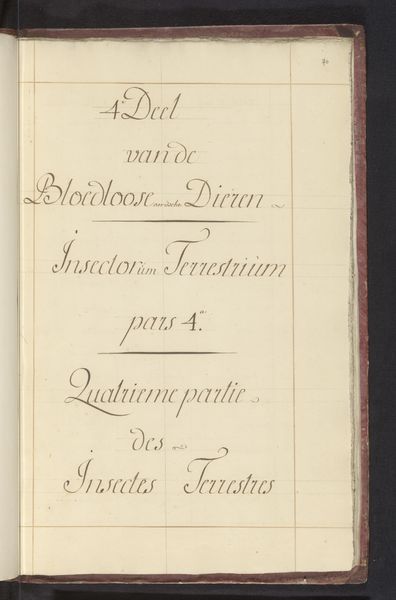 70
4e Deel
van de
Bloedloose aardsche Dieren
Insectorum Terrestrium
pars 4a.
Quatrieme partie
des
Insectes Terrestres